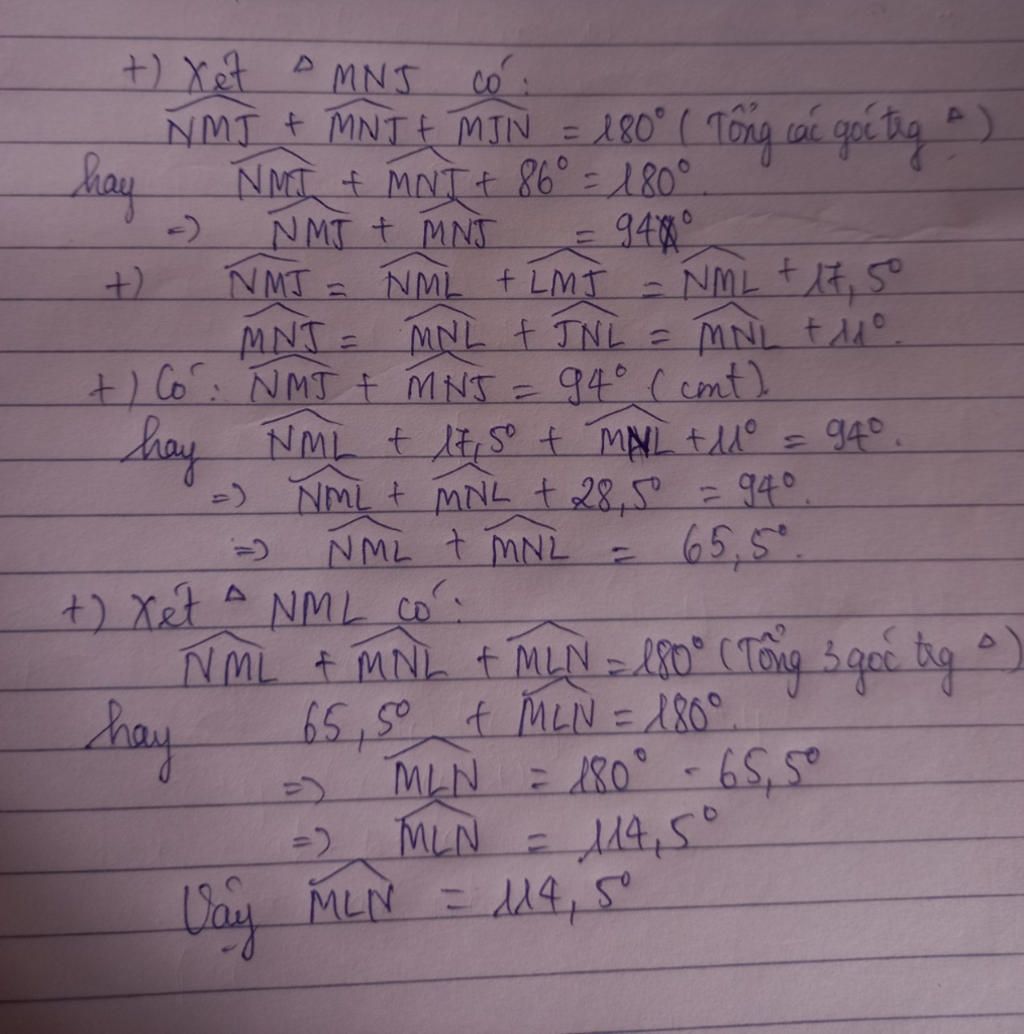 +) Xét △ MNJ có:
NMJ + MNJ + MJN = 180° (Tổng các góc trg △)
hay NMJ + MNJ + 86° = 180°.
=) NMJ + MNJ = 94°
+) NMJ = NML + LMJ = NML + 17,5°
MNJ = MNL + JNL = MNL + 11°.
+) Có: NMJ + MNJ = 94° (cmt).
hay NML + 17,5° + MNL + 11° = 94°.
=) NML + MNL + 28,5° = 94°.
=) NML + MNL = 65,5°.
+) Xét △ NML có:
NML + MNL + MLN = 180° (Tổng 3 góc trg △)
hay 65,5° + MLN = 180°.
=) MLN = 180° - 65,5°
=) MLN = 114,5°
Vậy MLN = 114,5°